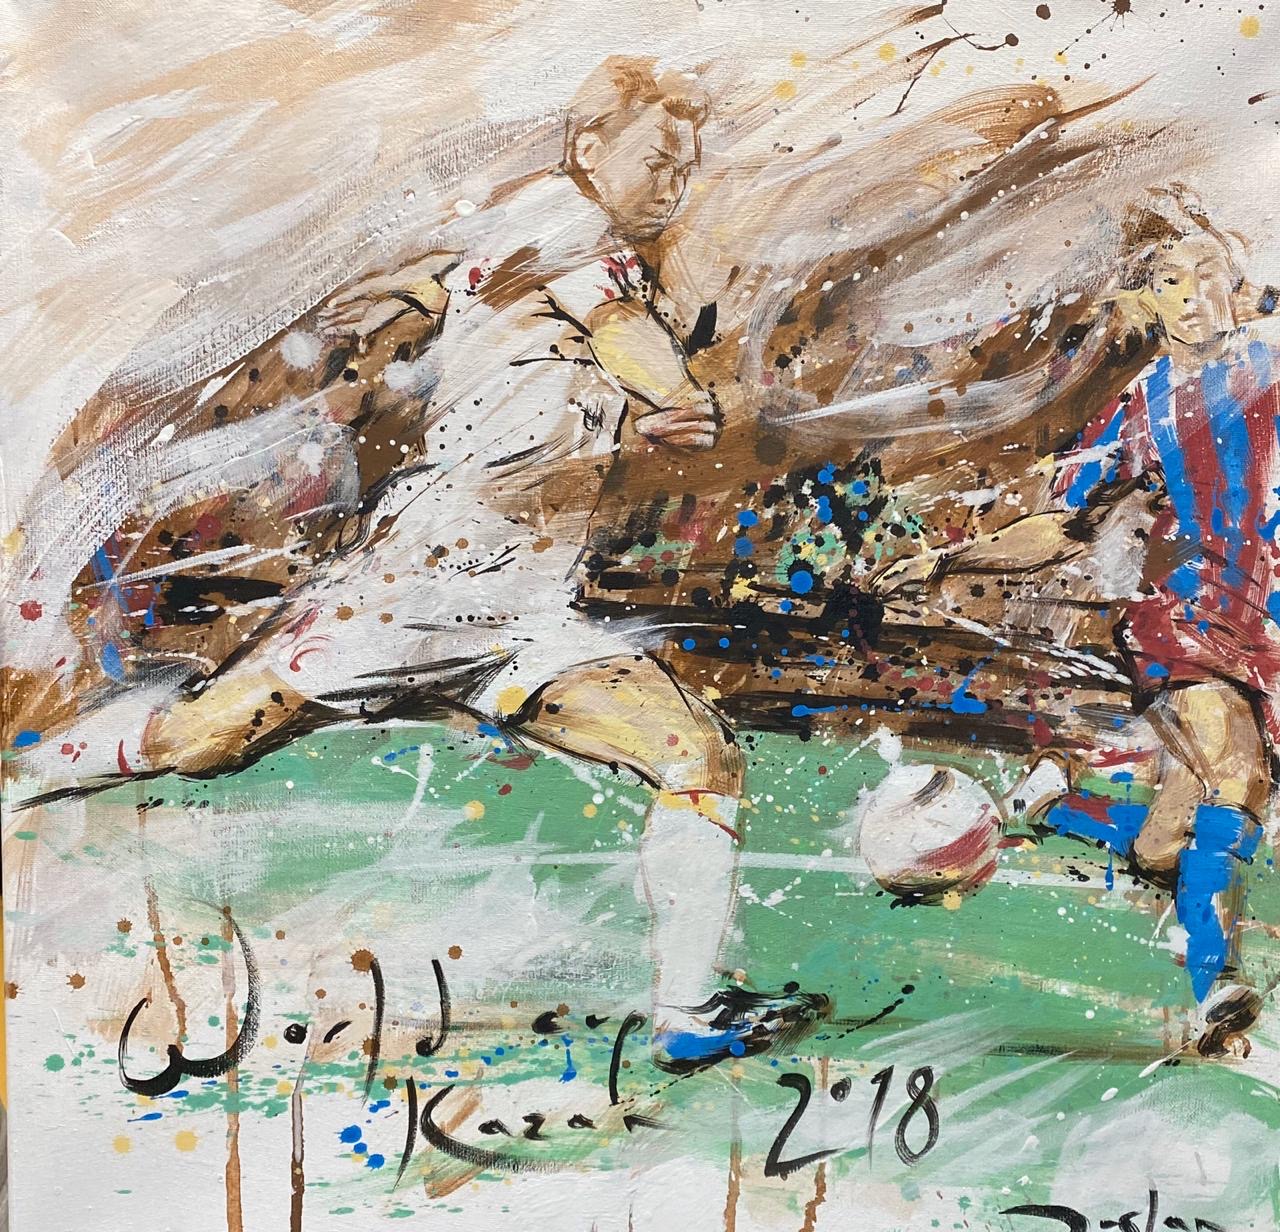 World cup
Kazan 2018